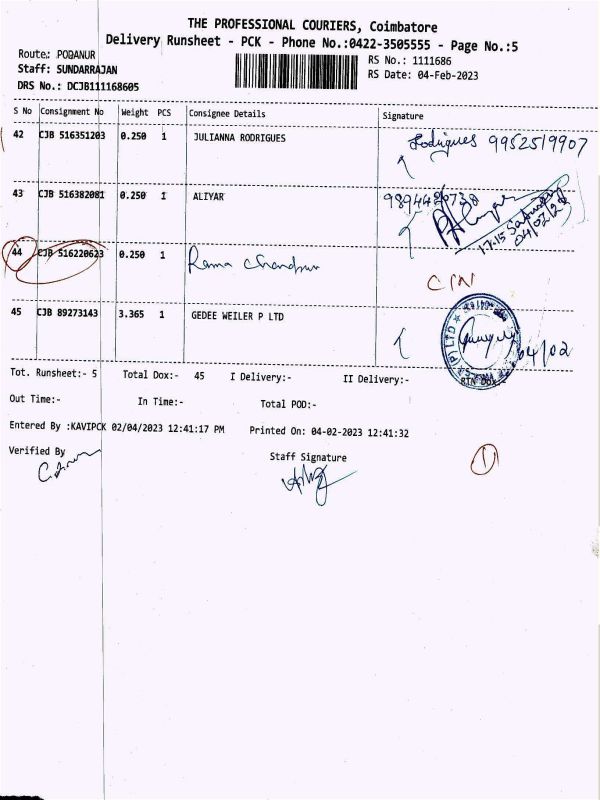 THE PROFESSIONAL COURIERS, Coimbatore
Delivery Runsheet - PCK - Phone No.:0422-3505555 - Page No.:5
Route: PODANUR
Staff: SUNDARRAJAN
DRS No.: DCJB111168605
RS No.: 1111686
RS Date: 04-Feb-2023
S No Consignment No Weight PCS Consignee Details Signature
42 CJB 516351203 0.250 1 JULIANNA RODRIGUES Rodrigues 9952519907
43 CJB 516382081 0.250 1 ALIYAR 9894420738
17.15 Saturday
04/02/23
44 CJB 516220623 0.250 1 Rama Chandran
45 CJB 89273143 3.365 1 GEDEE WEILER P LTD 04/02
Tot. Runsheet:- 5 Total Dox:- 45 I Delivery:- II Delivery:- RTN Dox:-
Out Time:- In Time:- Total POD:-
Entered By :KAVIPCK 02/04/2023 12:41:17 PM Printed On: 04-02-2023 12:41:32
Verified By
Staff Signature
1